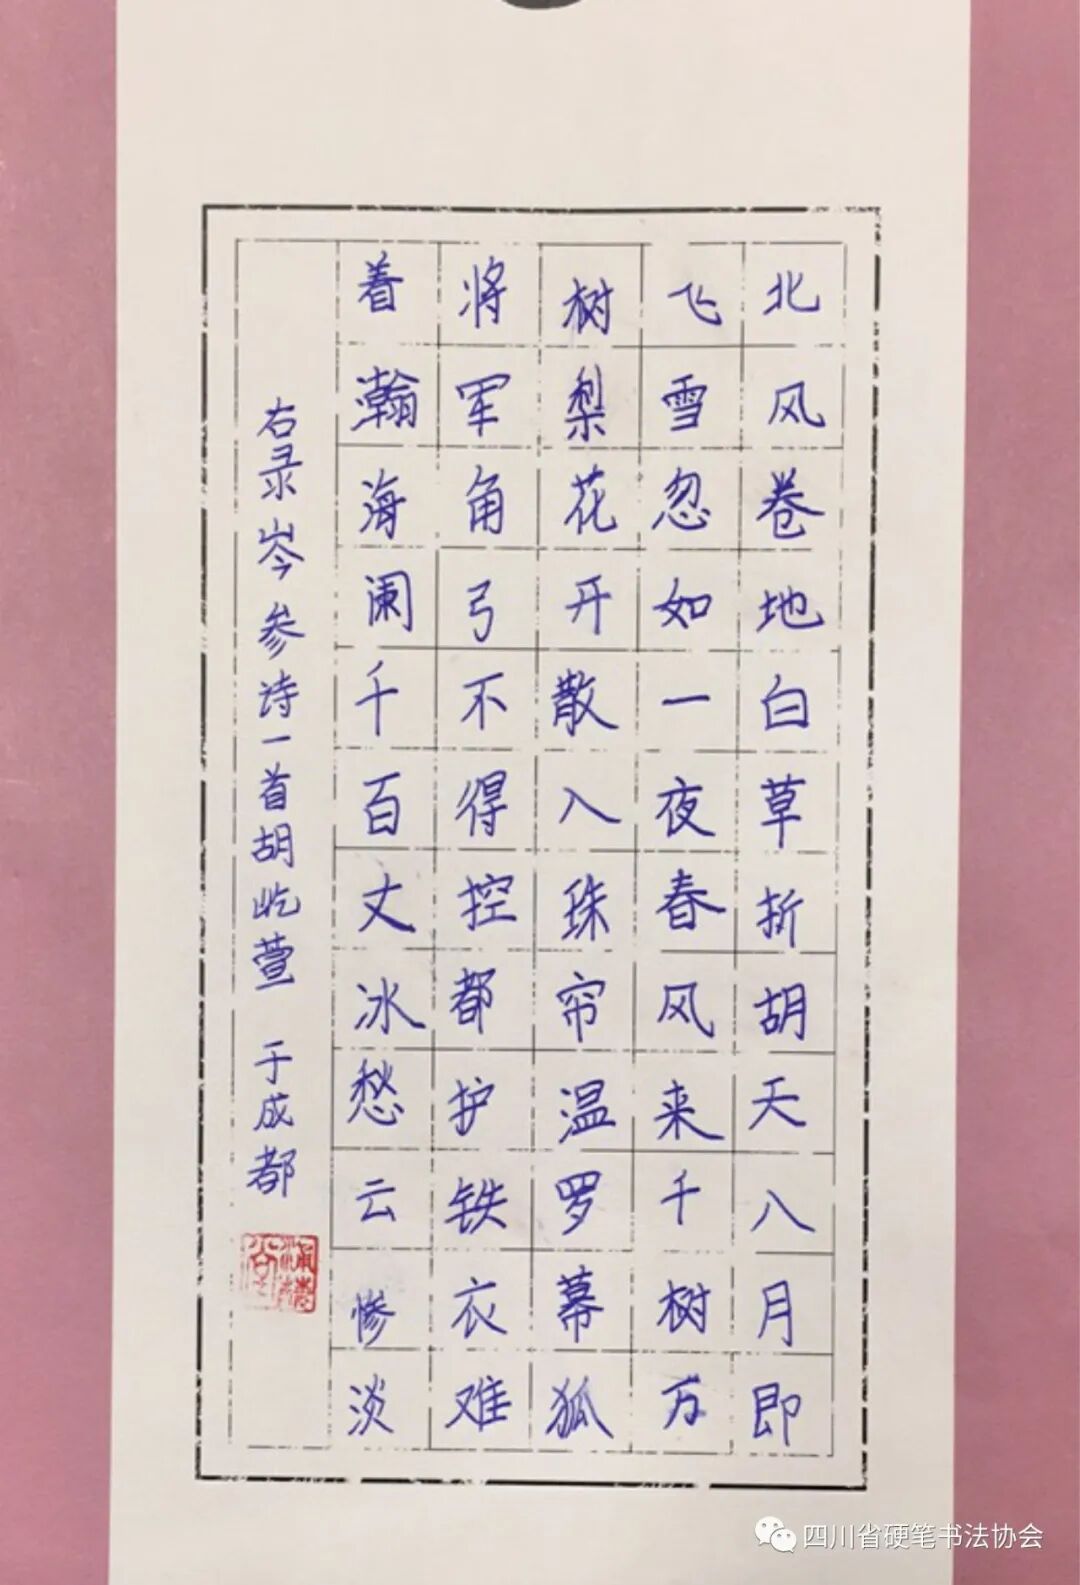 北风卷地白草折胡天八月即
飞雪忽如一夜春风来千树万
树梨花开散入珠帘温罗幕狐
将军角弓不得控都护铁衣难
着瀚海阑千百丈冰愁云惨淡
右录岑参诗一首胡屹萱 于成都
四川省硬笔书法协会